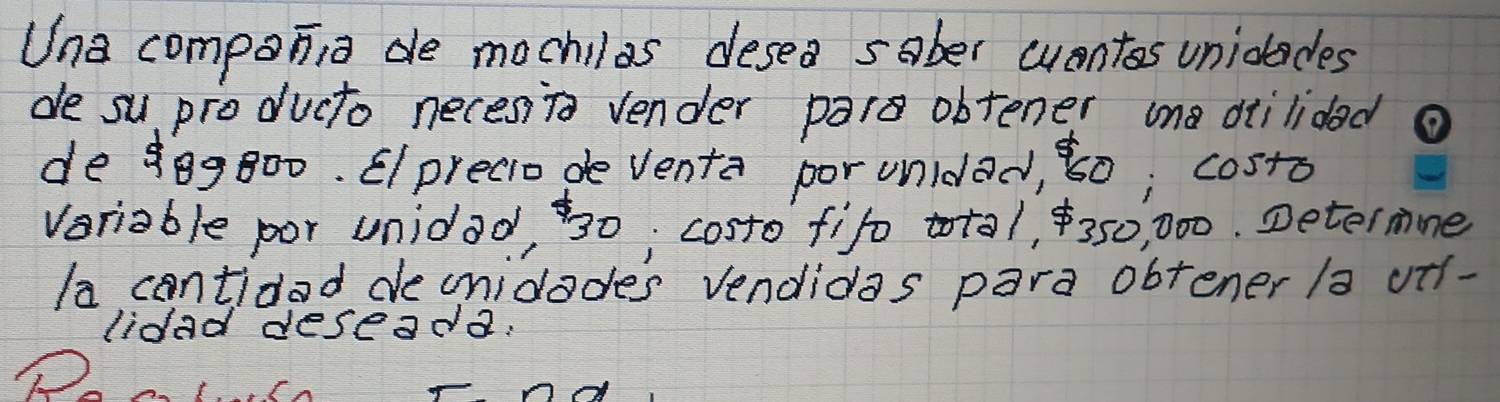 Una compañia de mochilas desea saber cuantas unidades
de su producto necesita vender para obtener una utilidad
de $89800. El precio de venta por unidad, $60; costo
variable por unidad, $30; costo fijo total, $350,000. Determine
la cantidad de unidades vendidas para obtener la uti-
lidad deseada.